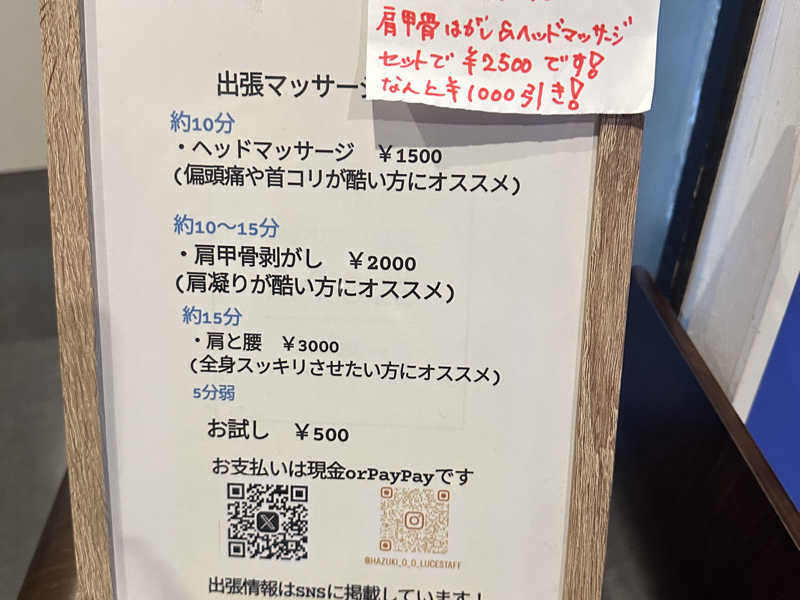 肩甲骨はがし&ヘッドマッサージ
セットで¥2500です!
なんと¥1000引き!
出張マッサージ
約10分
・ヘッドマッサージ ¥1500
(偏頭痛や首コリが酷い方にオススメ)
約10〜15分
・肩甲骨剥がし ¥2000
(肩凝りが酷い方にオススメ)
約15分
・肩と腰 ¥3000
(全身スッキリさせたい方にオススメ)
5分弱
お試し ¥500
お支払いは現金orPayPayです
@HAZUKI_0_0_LUCESTAFF
出張情報はSNSに掲載しています!